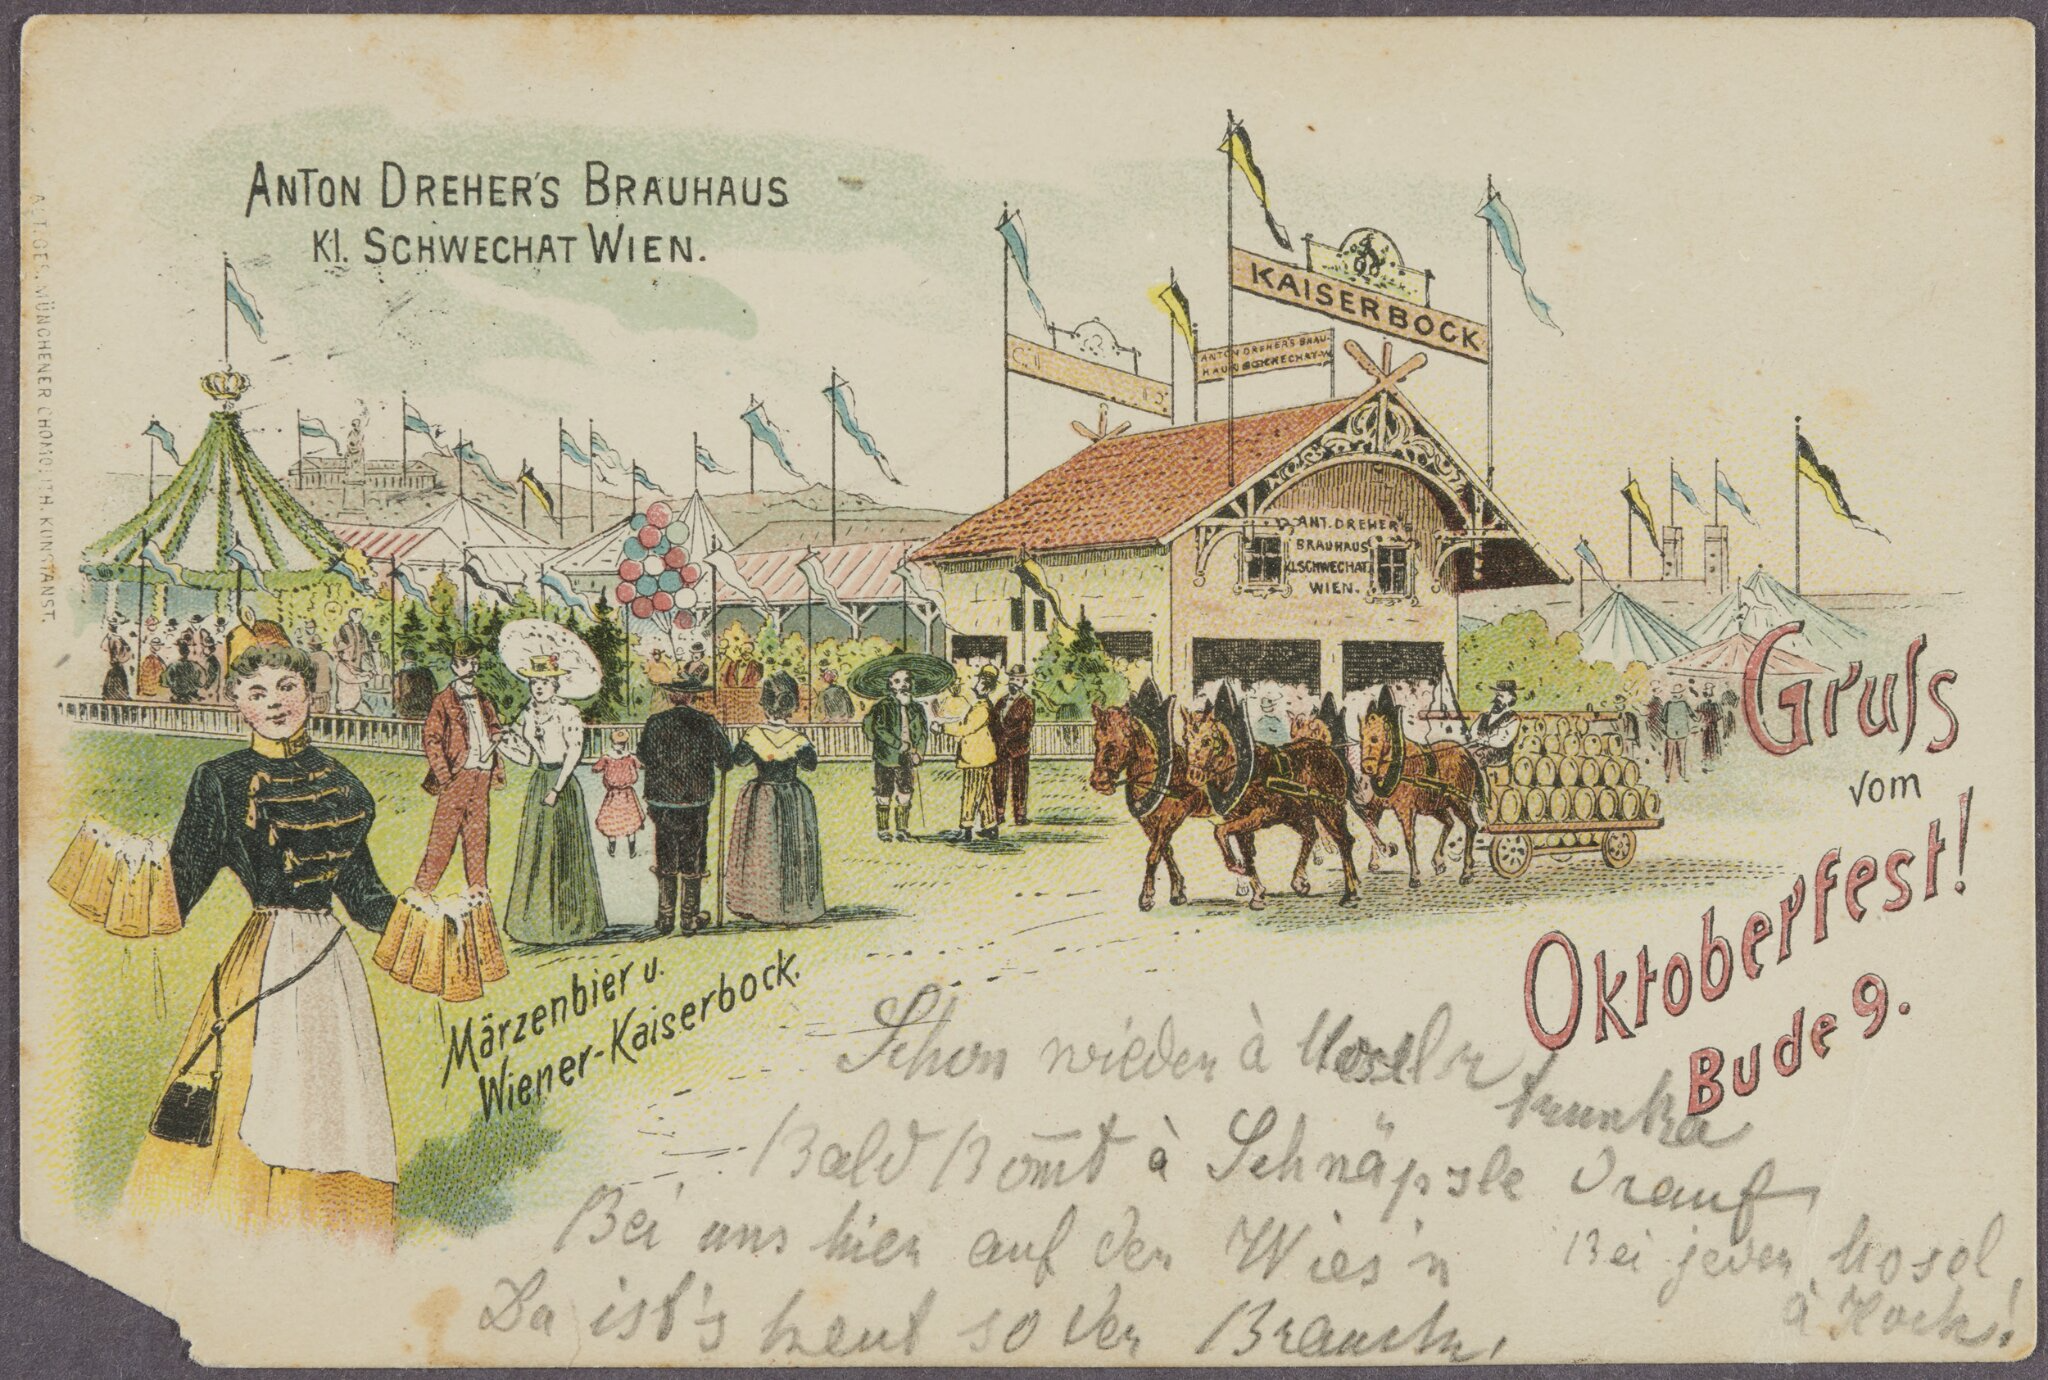 ANTON DREHER'S BRAUHAUS
Kl. SCHWECHAT WIEN.
ACT. GES. MÜNCHENER CHROMOLITH. KUNSTANST.
KAISERBOCK
ANTON DREHER'S BRAU-
HAUS SCHWECHAT-W
ANT. DREHER'S
BRAUHAUS
KL. SCHWECHAT
WIEN.
Gruss
vom
Oktoberfest!
Bude 9.
Märzenbier u.
Wiener-Kaiserbock.
Schon wieder à trunka
Bald kom̅t à Schnäpsle drauf
Bei uns hier auf der Wies'n
Da ist's heut so der Brauch.
Bei jeder
à Hoch!